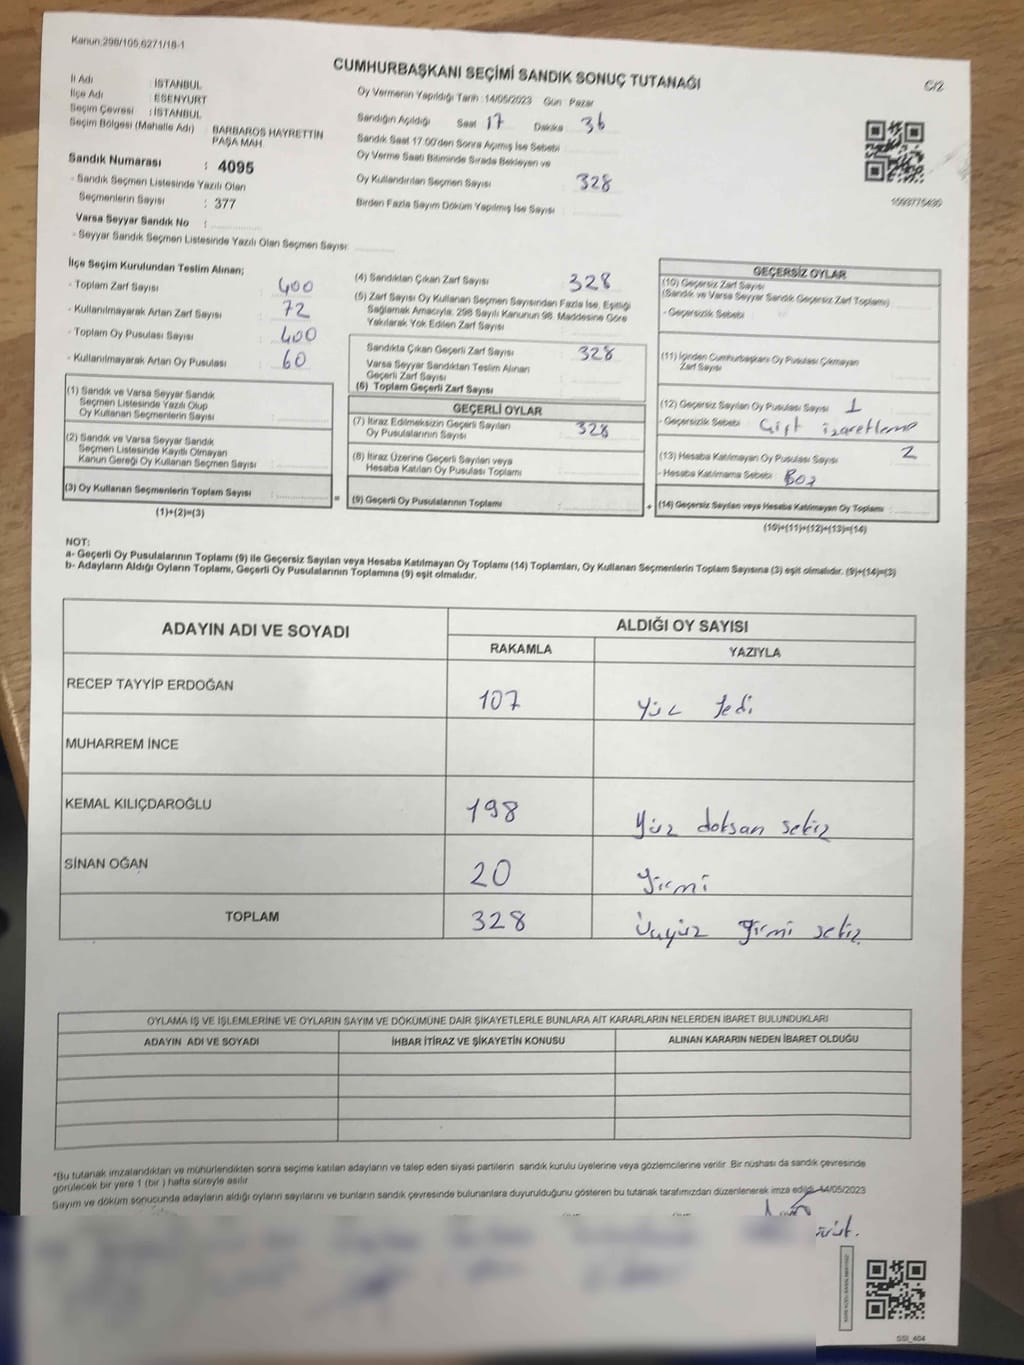 Kanun:298/105,6271/18-1
CUMHURBAŞKANI SEÇİMİ SANDIK SONUÇ TUTANAĞI
C/2
İl Adı : İSTANBUL
İlçe Adı : ESENYURT
Seçim Çevresi : İSTANBUL
Seçim Bölgesi (Mahalle Adı) : BARBAROS HAYRETTİN
PAŞA MAH.
Sandık Numarası : 4095
- Sandık Seçmen Listesinde Yazılı Olan
Seçmenlerin Sayısı : 377
Varsa Seyyar Sandık No :
- Seyyar Sandık Seçmen Listesinde Yazılı Olan Seçmen Sayısı:
Oy Vermenin Yapıldığı Tarih :14/05/2023 Gün : Pazar
Sandığın Açıldığı Saat 17 Dakika 36
Sandık Saat 17.00'den Sonra Açılmış İse Sebebi
Oy Verme Saati Bitiminde Sırada Bekleyen ve
Oy Kullandırılan Seçmen Sayısı 328
Birden Fazla Sayım Döküm Yapılmış İse Sayısı
İlçe Seçim Kurulundan Teslim Alınan;
- Toplam Zarf Sayısı : 400
- Kullanılmayarak Artan Zarf Sayısı : 72
- Toplam Oy Pusulası Sayısı : 400
- Kullanılmayarak Artan Oy Pusulası : 60
(1) Sandık ve Varsa Seyyar Sandık
Seçmen Listesinde Yazılı Olup
Oy Kullanan Seçmenlerin Sayısı :
(2) Sandık ve Varsa Seyyar Sandık
Seçmen Listesinde Kayıtlı Olmayan
Kanun Gereği Oy Kullanan Seçmen Sayısı :
(3) Oy Kullanan Seçmenlerin Toplam Sayısı :
(1)+(2)=(3)
(4) Sandıktan Çıkan Zarf Sayısı 328
(5) Zarf Sayısı Oy Kullanan Seçmen Sayısından Fazla İse, Eşitliği
Sağlamak Amacıyla, 298 Sayılı Kanunun 98. Maddesine Göre
Yakılarak Yok Edilen Zarf Sayısı :
Sandıkta Çıkan Geçerli Zarf Sayısı 328
Varsa Seyyar Sandıktan Teslim Alınan
Geçerli Zarf Sayısı
(6) Toplam Geçerli Zarf Sayısı
GEÇERLİ OYLAR
(7) İtiraz Edilmeksizin Geçerli Sayılan
Oy Pusulalarının Sayısı : 328
(8) İtiraz Üzerine Geçerli Sayılan veya
Hesaba Katılan Oy Pusulası Toplamı
= (9) Geçerli Oy Pusulalarının Toplamı
GEÇERSİZ OYLAR
(10) Geçersiz Zarf Sayısı
(Sandık ve Varsa Seyyar Sandık Geçersiz Zarf Toplamı)
- Geçersizlik Sebebi :
(11) İçinden Cumhurbaşkanı Oy Pusulası Çıkmayan
Zarf Sayısı
(12) Geçersiz Sayılan Oy Pusulası Sayısı 1
- Geçersizlik Sebebi Çift izaretleme
(13) Hesaba Katılmayan Oy Pusulası Sayısı 2
- Hesaba Katılmama Sebebi Boş
+ (14) Geçersiz Sayılan veya Hesaba Katılmayan Oy Toplamı :
(10)+(11)+(12)+(13)=(14)
NOT:
a- Geçerli Oy Pusulalarının Toplamı (9) ile Geçersiz Sayılan veya Hesaba Katılmayan Oy Toplamı (14) Toplamları, Oy Kullanan Seçmenlerin Toplam Sayısına (3) eşit olmalıdır. (9)+(14)=(3)
b- Adayların Aldığı Oyların Toplamı, Geçerli Oy Pusulalarının Toplamına (9) eşit olmalıdır.
ADAYIN ADI VE SOYADI
ALDIĞI OY SAYISI
RAKAMLA YAZIYLA
RECEP TAYYİP ERDOĞAN 107 yüz yedi
MUHARREM İNCE
KEMAL KILIÇDAROĞLU 198 yüz doksan sekiz
SİNAN OĞAN 20 yirmi
TOPLAM 328 üçyüz yirmi sekiz
OYLAMA İŞ VE İŞLEMLERİNE VE OYLARIN SAYIM VE DÖKÜMÜNE DAİR ŞİKAYETLERLE BUNLARA AİT KARARLARIN NELERDEN İBARET BULUNDUKLARI
ADAYIN ADI VE SOYADI İHBAR İTİRAZ VE ŞİKAYETİN KONUSU ALINAN KARARIN NEDEN İBARET OLDUĞU
*Bu tutanak imzalandıktan ve mühürlendikten sonra seçime katılan adayların ve talep eden siyasi partilerin sandık kurulu üyelerine veya gözlemcilerine verilir. Bir nüshası da sandık çevresinde
görülecek bir yere 1 (bir ) hafta süreyle asılır.
Sayım ve döküm sonucunda adayların aldığı oyların sayılarını ve bunların sandık çevresinde bulunanlara duyurulduğunu gösteren bu tutanak tarafımızdan düzenlenerek imza edildi. 14/05/2023
SSI_404